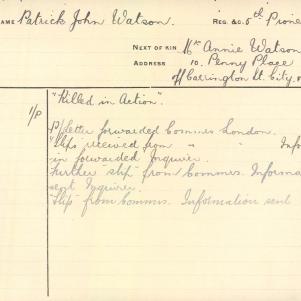 NAME Patrick John Watson. REG. &C. 5th Pione
NEXT OF KIN Mrs Annie Watson
ADDRESS 10. Penny Place
off Carrington St. City.
1/P "Killed in Action".
P/Letter forwarded Commrs London.
"Slips received from " " Info
in forwarded Inquirer.
Further "slip" from Commrs. Informa
sent Inquirer.
"Slip" from Commrs. Information sent